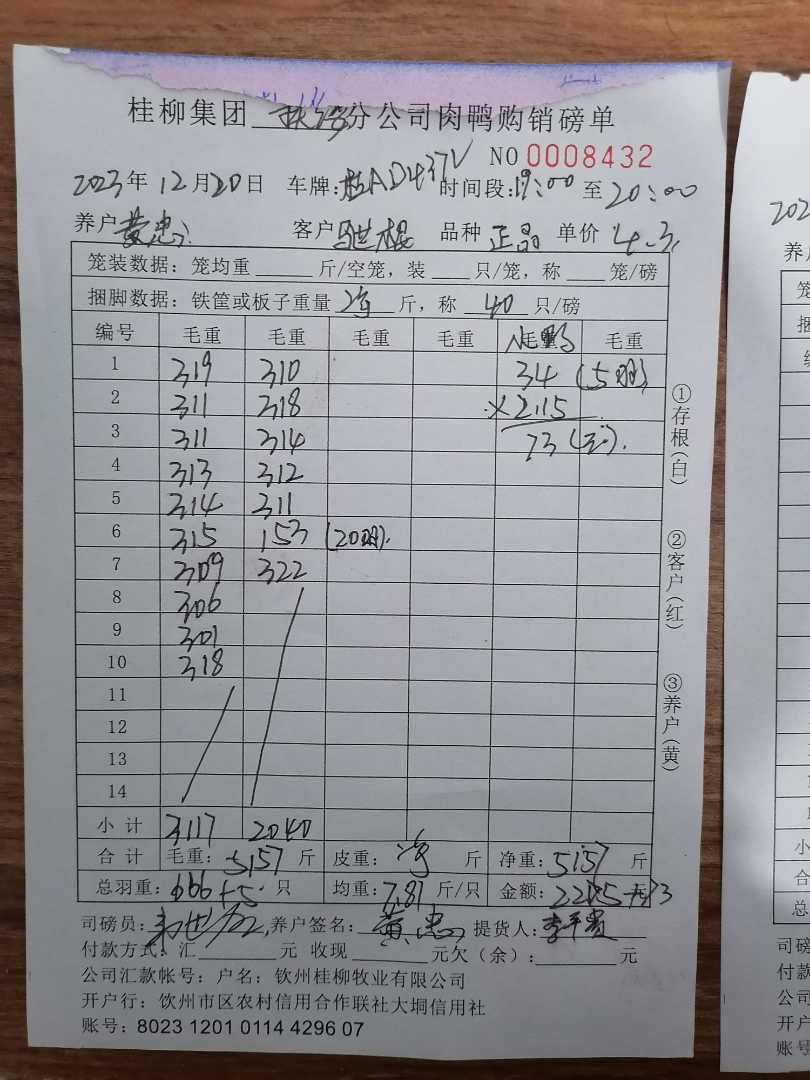 桂柳集团 分公司肉鸭购销磅单
NO 0008432
2023年 12月20日 车牌:桂AD437V 时间段:19:00 至 20:00
养户 黄忠 客户 品种 正品 单价 4.3
笼装数据:笼均重 斤/空笼,装 只/笼,称 笼/磅
捆脚数据:铁筐或板子重量 净 斤,称 40 只/磅
编号 毛重 毛重 毛重 毛重 毛重 毛重
1 319 310 34 (5羽)
2 311 318 ×2.15
3 311 314 73
4 313 312
5 314 311
6 315 153 (20羽)
7 309 322
8 306
9 301
10 318
11
12
13
14
小计 3117 2040
合计 毛重:5157斤 皮重:净 斤 净重:5157斤
总羽重:666+5 只 均重:7.81斤/只 金额:22175+73
司磅员: 养户签名:黄忠 提货人:李平贵
付款方式:汇 元 收现 元欠(余): 元
公司汇款帐号:户名:钦州桂柳牧业有限公司
开户行:钦州市区农村信用合作联社大垌信用社
账号:8023 1201 0114 4296 07
①存根(白)
②客户(红)
③养户(黄)
202
养户